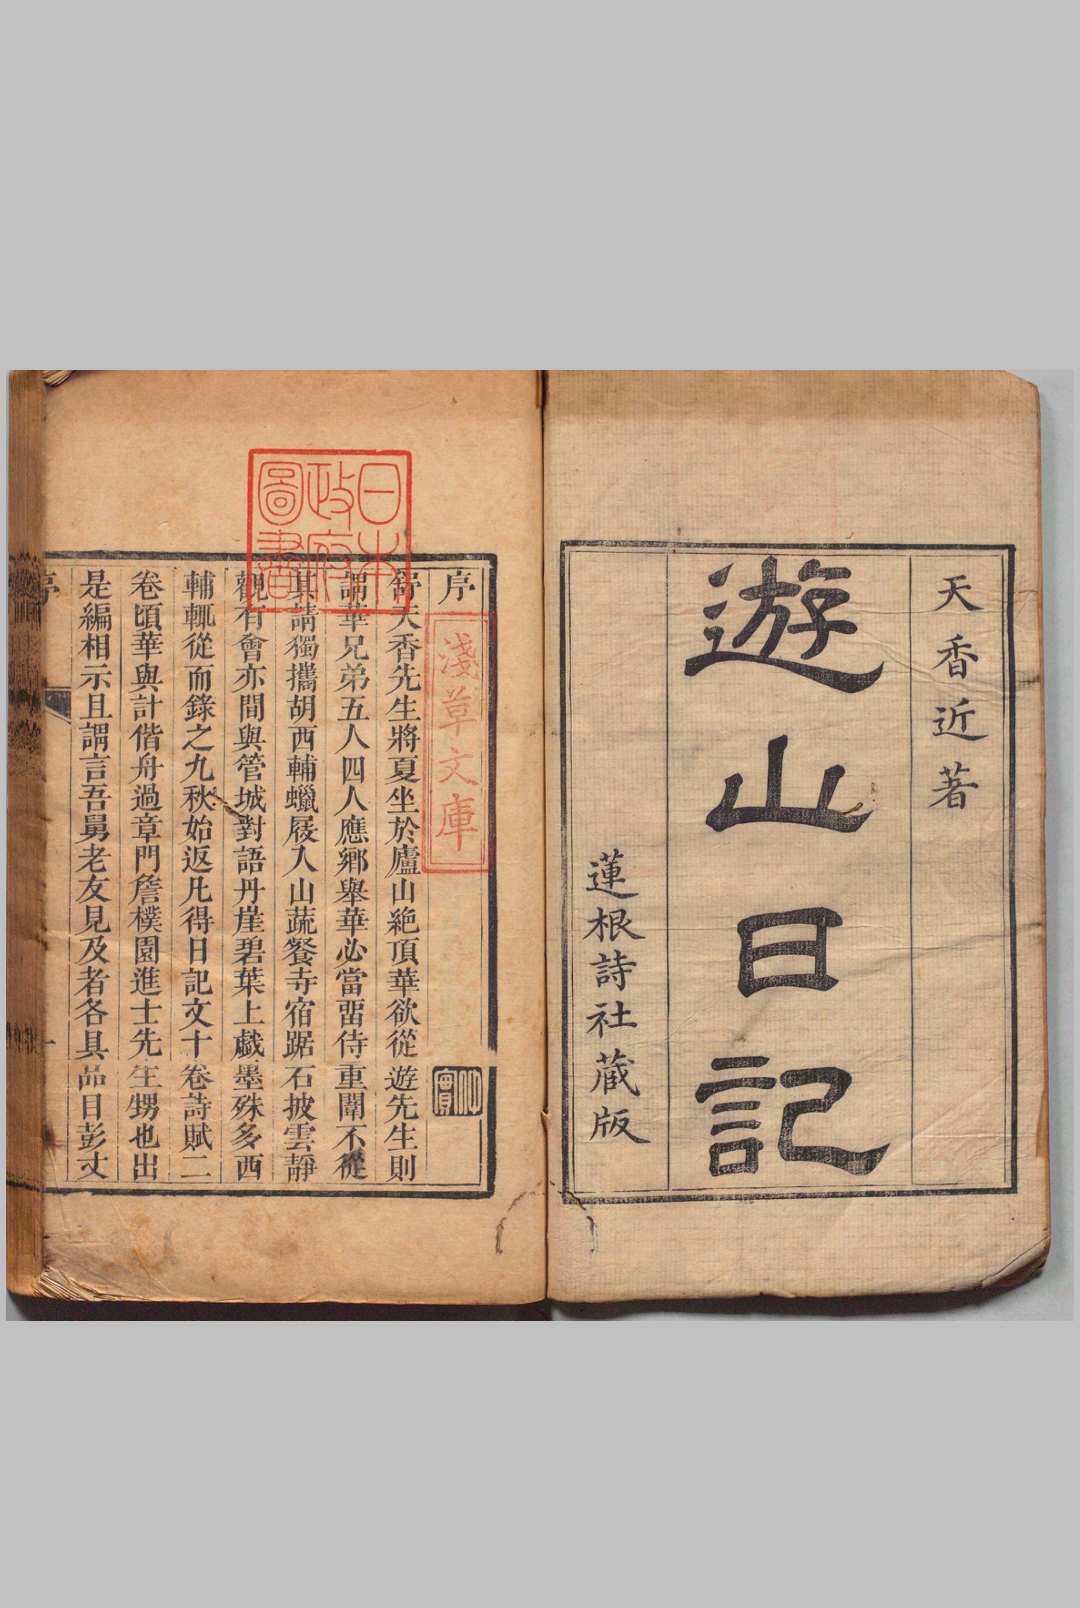 天香近著
遊山日記
蓮根詩社蔵版
日本
政府
圖書
淺草文庫
序
舒天香先生將夏坐於廬山絶頂華欲從遊先生則
謂華兄弟五人四人應鄉舉華必當畱侍重闈不從
其請獨攜胡西輔蠟屐入山蔬餐寺宿踞石披雲靜
觀有會亦間與管城對語丹崖碧葉上戯墨殊多西
輔輒從而錄之九秋始返凡得日記文十卷詩賦二
卷頃華與計偕舟過章門詹樸園進士先生甥也出
是編相示且謂言吾舅老友見及者各具品目彭丈
序
一